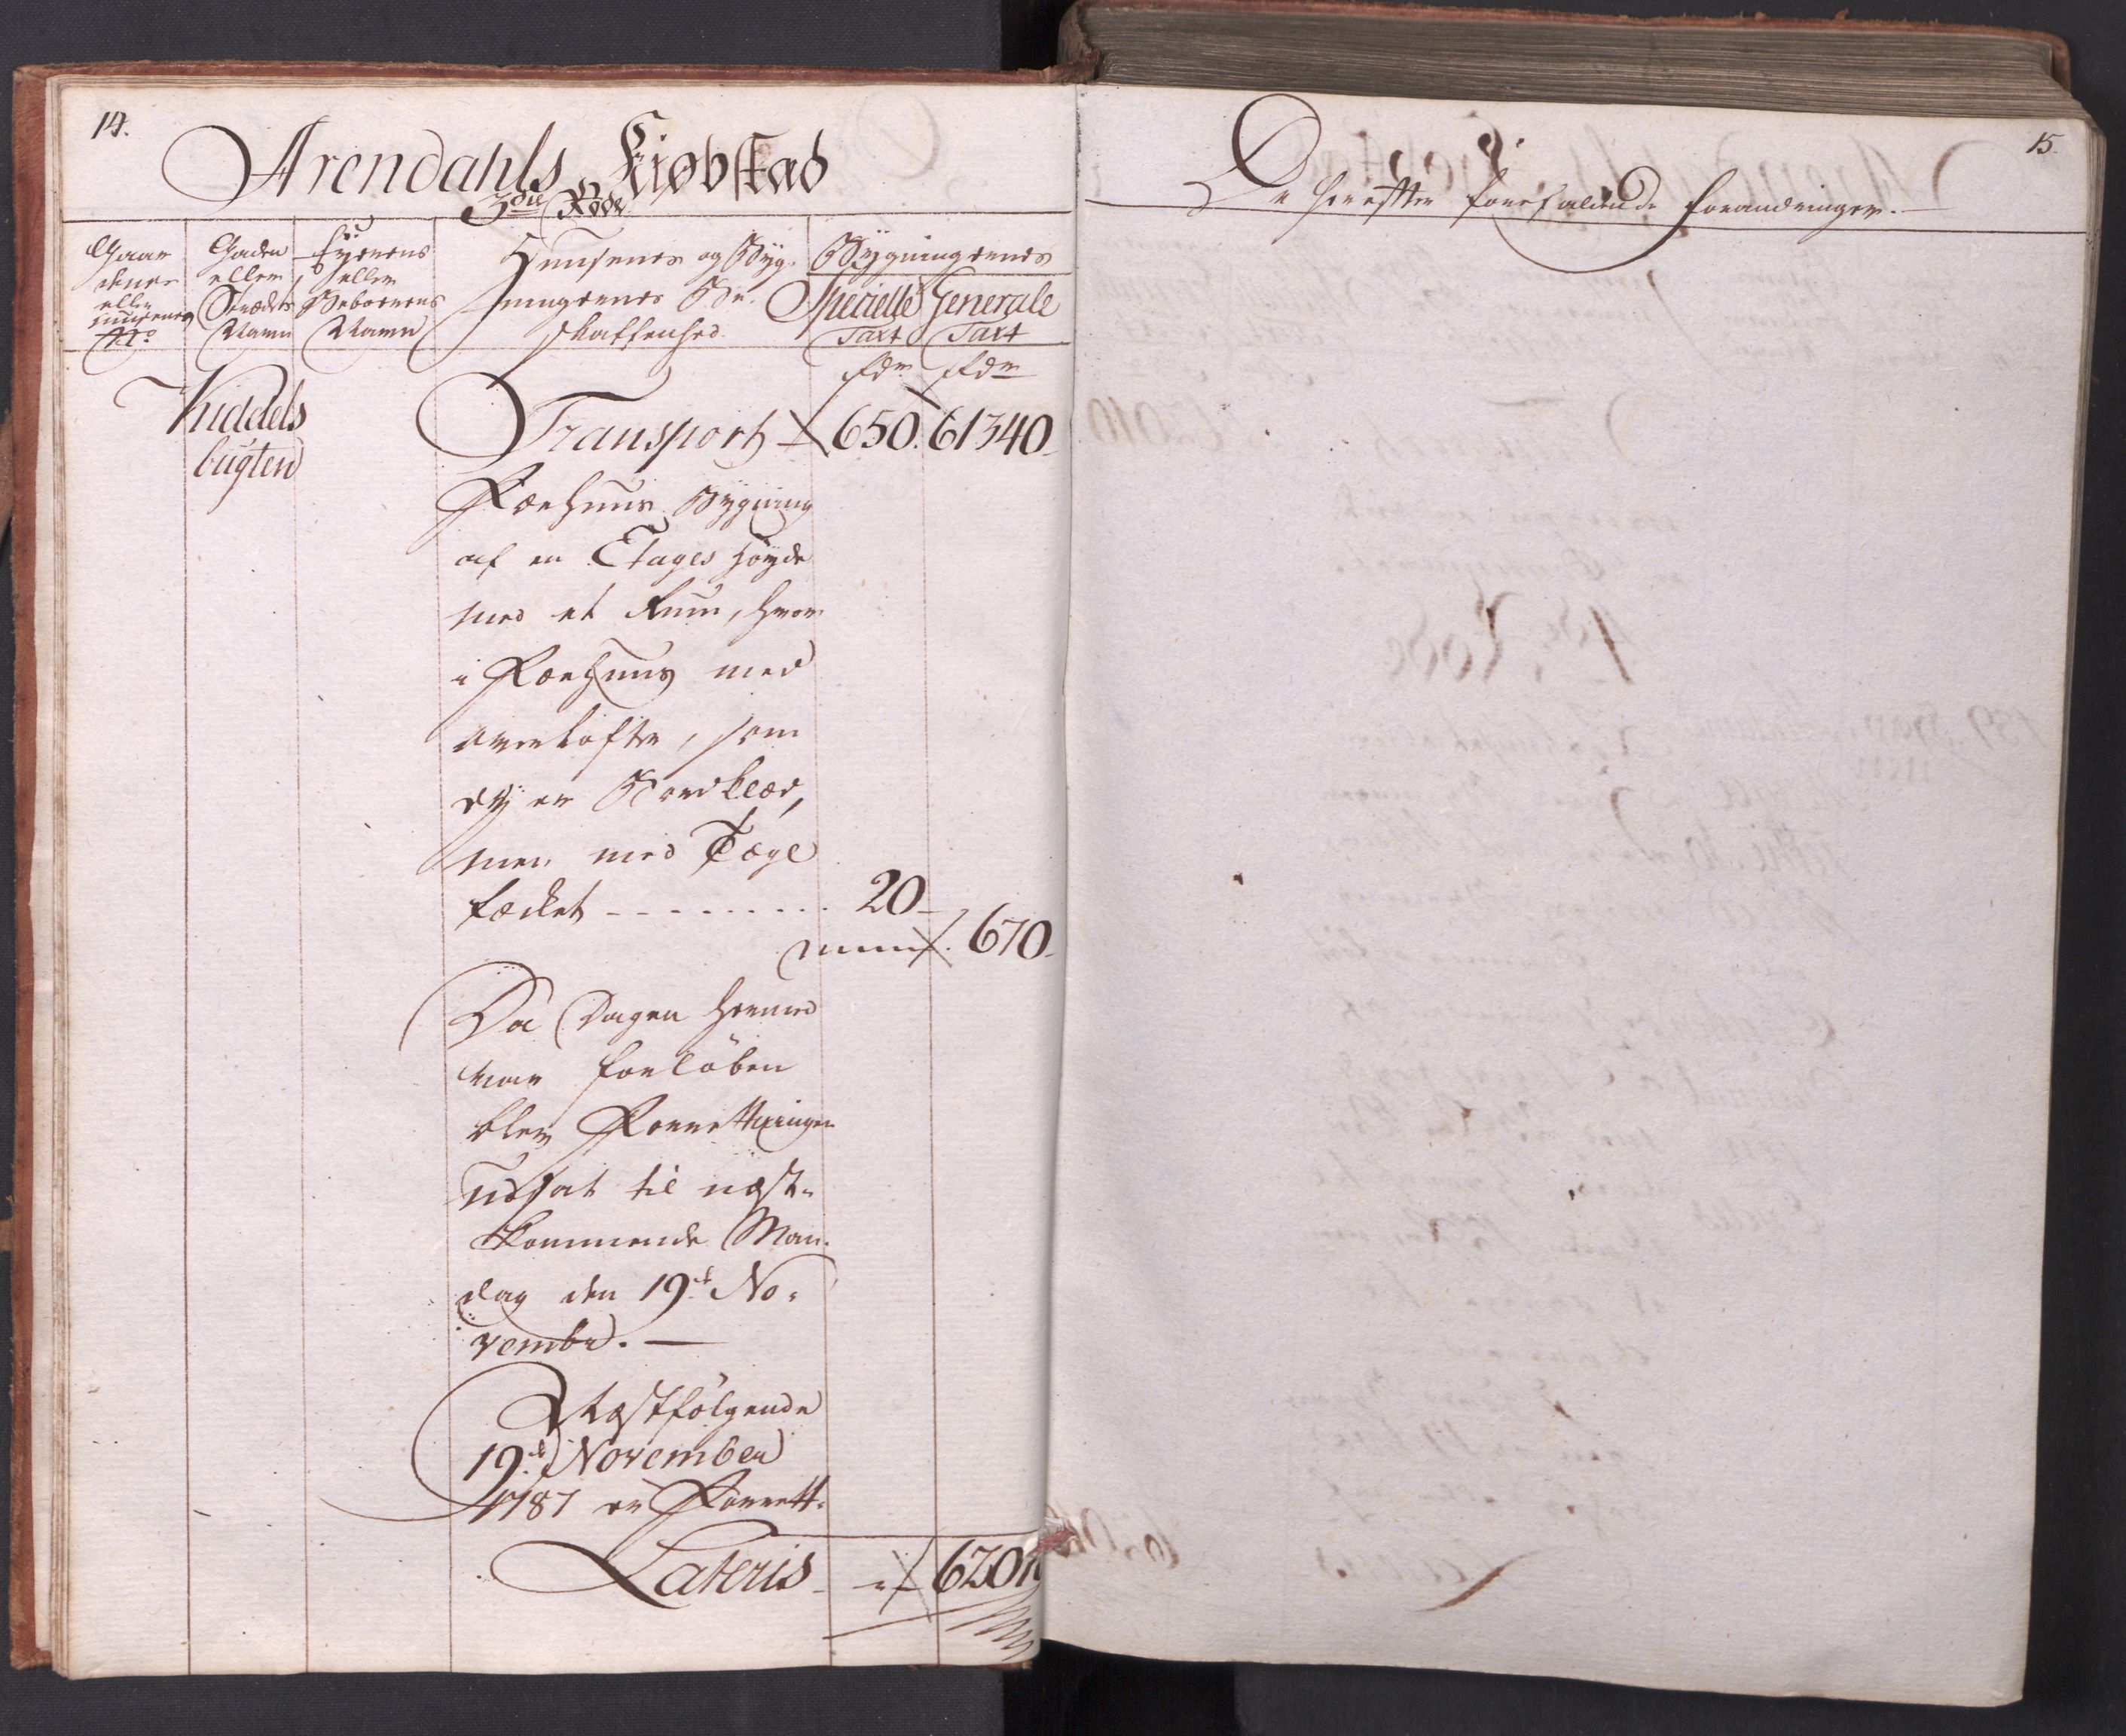 14.
Arendahls Kiøbstad
3die Rode
Gaar
denes
eller
Husenes
No
Gaden
eller
Strædets
Navn
Eyerens
eller
Beboerens
Navn
Huusenes og Byg-
ningernes Be-
skaffenhed.
Bygningernes
Specielle Generale
Taxt Taxt
Rdr Rdr
Kiddels
bugten
Transport 650. 61340
Søehuus Bygning
af en Etages Høyde
med et Rum, hvor
i Søehuus med
overlofter, som
ey er Bordklæd,
men med Tægl
tæcket - - - - - - - - - 20
670
Da Dagen hermed
var forløben
blev Forrettningen
udsat til næst-
kommende Man-
dag den 19de No-
vembr. —
Næstfølgende
19de November
1787 er Forrett-
Lateris 62010
15.
De herefter forefaldende Forandringer. —